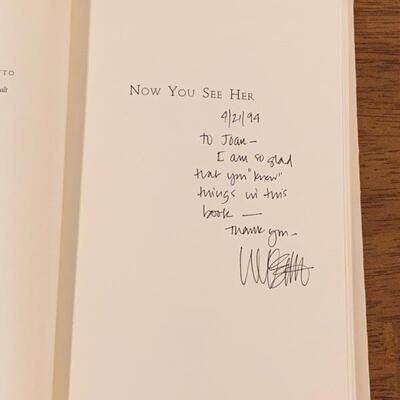 TTO
Now You See Her
4/21/94
to Joan –
I am so glad
that you "knew"
things in this
book —
Thank you –